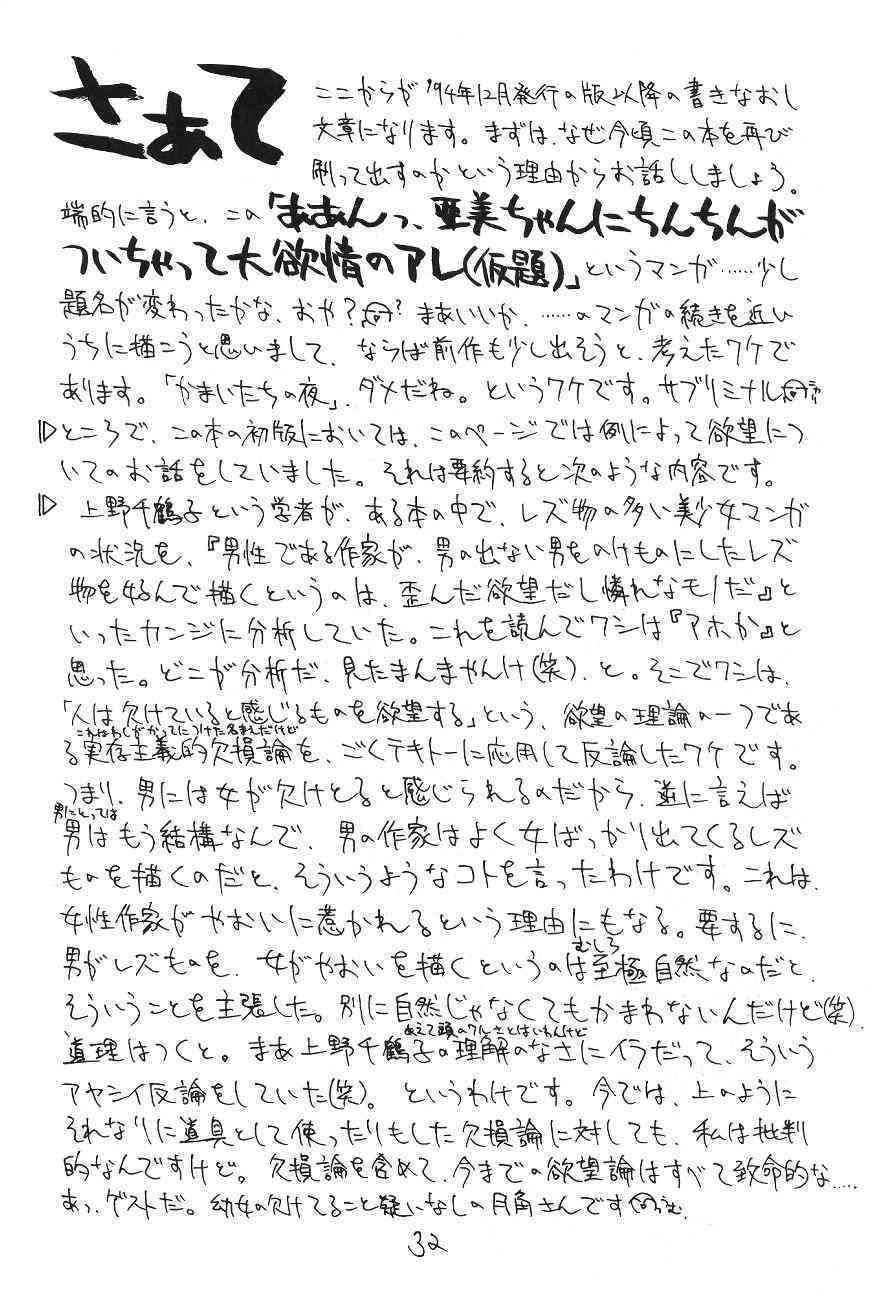 さぁて
ここからが'94年12月発行の版以降の書きなおし
文章になります。まずは、なぜ今頃この本を再び
刷って出すのかという理由からお話ししましょう。
端的に言うと、この「ああんっ、亜美ちゃんにちんちんが
ついちゃって大欲情のアレ(仮題)」というマンガ……少し
題名が変わったかな、おや?? まあいいか、……のマンガの続きを近い
うちに描こうと思いまして、ならば前作も少し出そうと、考えたワケで
あります。「かまいたちの夜」、ダメだね。というワケです。サブリミナル
ところで、この本の初版においては、このページでは例によって欲望につ
いてのお話をしていました。それは要約すると次のような内容です。
上野千鶴子という学者が、ある本の中で、レズ物の多い美少女マンガ
の状況を、『男性である作家が、男の出ない男をのけものにしたレズ
物を好んで描くというのは、歪んだ欲望だし憐れなモノだ』と
いったカンジに分析していた。これを読んでワシは『アホか』と
思った。どこが分析だ、見たまんまやんけ(笑)、と。そこでワシは、
「人は欠けていると感じるものを欲望する」という、欲望の理論の一つであ
これはわしがかってにつけた名まえだけど
る実存主義的欠損論を、ごくテキトーに応用して反論したワケです。
つまり、男には女が欠けとると感じられるのだから、逆に言えば
男にとっては
男はもう結構なんで、男の作家はよく女ばっかり出てくるレズ
ものを描くのだと、そういうようなコトを言ったわけです。これは、
女性作家がやおいに惹かれるという理由にもなる。要するに、
むしろ
男がレズものを、女がやおいを描くというのは至極自然なのだと、
そういうことを主張した。別に自然じゃなくてもかまわないんだけど(笑)
あえて頭のワルさとはいわんけど
道理はつくと。まあ上野千鶴子の理解のなさにイラだって、そういう
アヤシイ反論をしていた(笑)。というわけです。今では、上のように
それなりに道具として使ったりもした欠損論に対しても、私は批判
的なんですけど。欠損論を含めて、今までの欲望論はすべて致命的な……
あっ、ゲストだ。幼女の欠けてること疑いなしの月角さんです
32